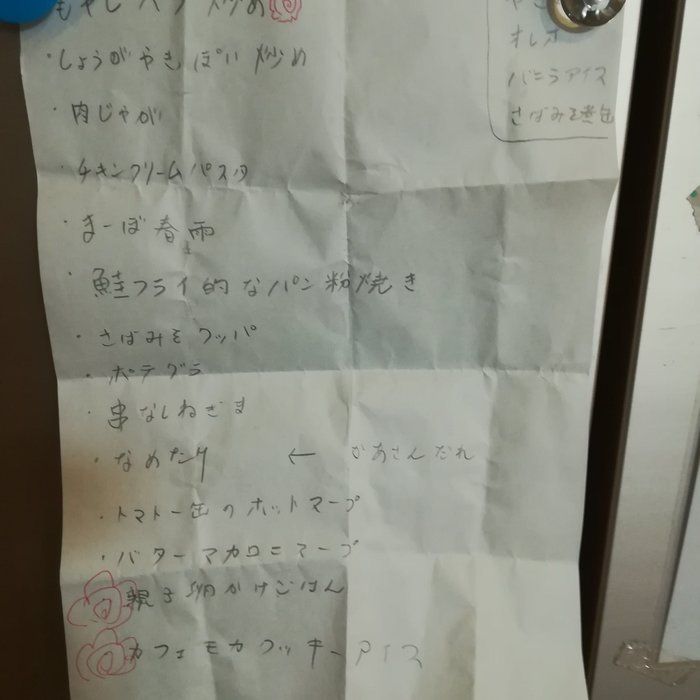 もやしベラ炒め
・しょうがやきぽい炒め
・肉じゃが
・チキンクリームパスタ
・まーぼ春雨
・鮭フライ的なパン粉焼き
・さばみそクッパ
・ポテグラ
・串なしねぎま
・なめたけ ← かあさんだれ
・トマト一缶のホットスープ
・バターマカロニスープ
親子卵かけごはん
カフェモカクッキーアイス
オレオ
バニラアイス
さばみそ煮缶